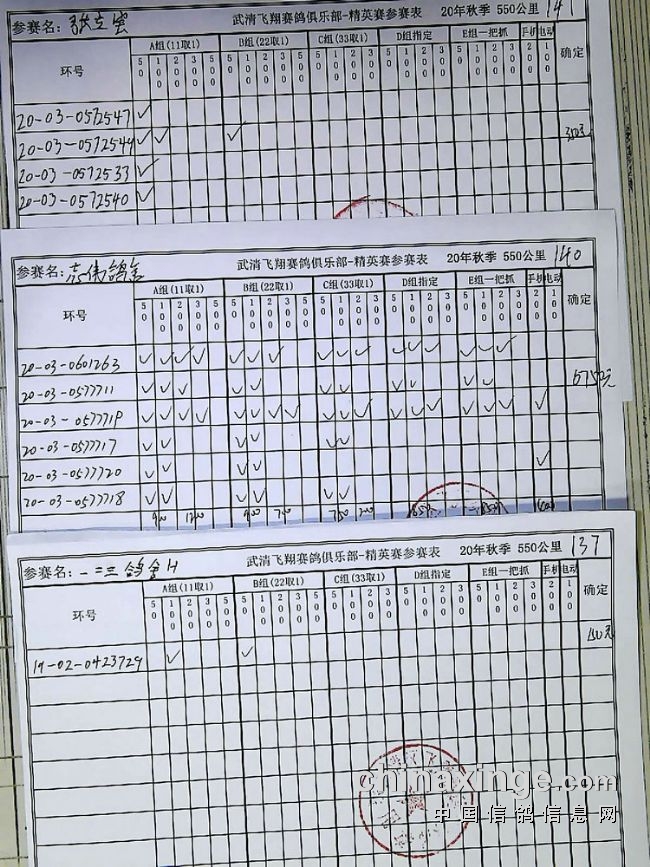 参赛名: 张立宝 武清飞翔赛鸽俱乐部-精英赛参赛表 20年秋季 550公里 141
环号 A组(11取1) B组(22取1) C组(33取1) D组指定 E组一把抓 手机 电动 确定
50 100 200 300 500 50 100 200 300 500 50 100 200 300 500 50 100 200 300 500 50 100 200 300 500 200 100
20-03-0572547 ✓
20-03-0572544 ✓ ✓ ✓
20-03-0572533 ✓
20-03-0572540 ✓
参赛名: 武清飞翔赛鸽俱乐部-精英赛参赛表 20年秋季 550公里 140
环号 A组(11取1) B组(22取1) C组(33取1) D组指定 E组一把抓 手机 电动 确定
50 100 200 300 500 50 100 200 300 500 50 100 200 300 500 50 100 200 300 500 50 100 200 300 500 200 100
20-03-0601263 ✓ ✓ ✓ ✓ ✓ ✓ ✓ ✓ ✓ ✓ ✓ ✓ ✓ ✓ ✓ ✓
20-03-0577711 ✓ ✓ ✓ ✓ ✓ ✓ ✓ ✓ ✓ ✓
6750元
20-03-0577719 ✓ ✓ ✓ ✓ ✓ ✓ ✓ ✓ ✓ ✓ ✓ ✓ ✓ ✓ ✓ ✓ ✓ ✓
20-03-0577717 ✓ ✓ ✓ ✓ ✓ ✓
20-03-0577720 ✓ ✓ ✓ ✓ ✓
20-03-0577718 ✓ ✓ ✓ ✓ ✓ ✓
900 1200 900 700 750 700 1050 1050 400
参赛名: 一二三鸽舍H 武清飞翔赛鸽俱乐部-精英赛参赛表 20年秋季 550公里 137
环号 A组(11取1) B组(22取1) C组(33取1) D组指定 E组一把抓 手机 电动 确定
50 100 200 300 500 50 100 200 300 500 50 100 200 300 500 50 100 200 300 500 50 100 200 300 500 200 100
150元
19-02-0423729 ✓ ✓
chinaxinge.com
中国信鸽信息网